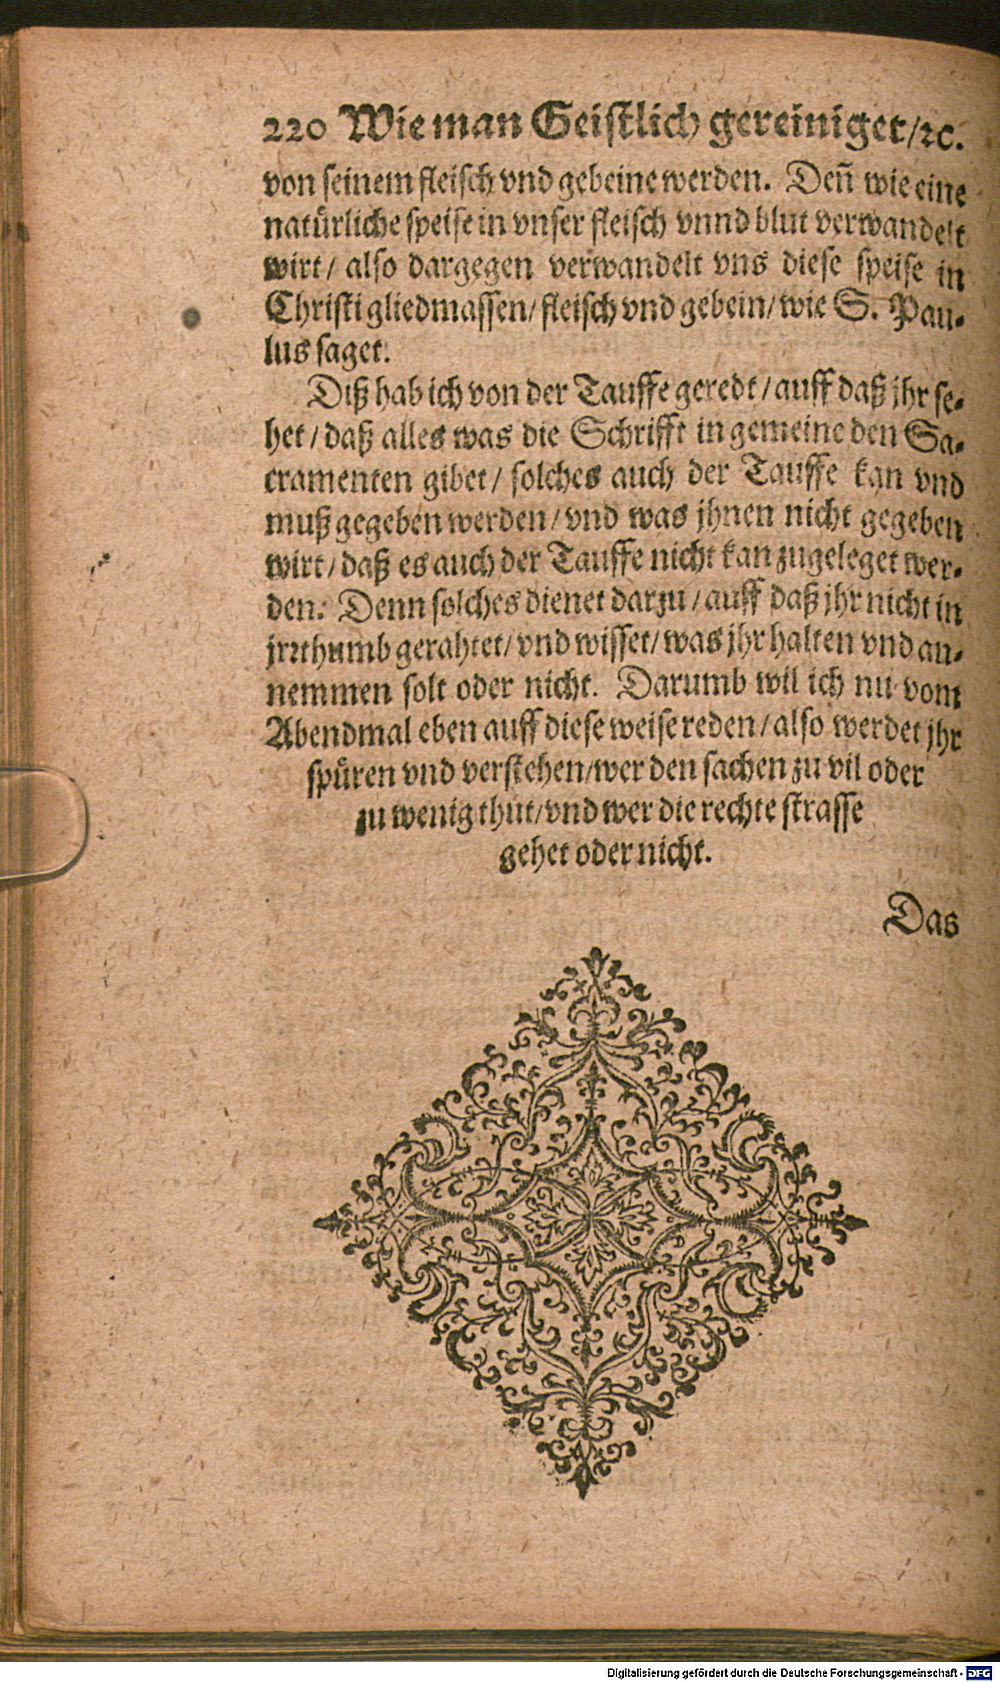 220 Wie man Geistlich gereiniget/ꝛc.
von seinem fleisch vnd gebeine werden. Deñ wie eine
natürliche speise in vnser fleisch vnnd blut verwandelt
wirt/ also dargegen verwandelt vns diese speise in
Christi gliedmassen/ fleisch vnd gebein/ wie S. Pau-
lus saget.
Diß hab ich von der Tauffe geredt/ auff daß jhr se-
het/ daß alles was die Schrifft in gemeine den Sa-
cramenten gibet/ solches auch der Tauffe kan vnd
muß gegeben werden/ vnd was jhnen nicht gegeben
wirt/ daß es auch der Tauffe nicht kan zugeleget wer-
den. Denn solches dienet darzu/ auff daß jhr nicht in
jrꝛthumb gerahtet/ vnd wisset/ was jhr halten vnd an-
nemmen solt oder nicht. Darumb wil ich nu vom
Abendmal eben auff diese weise reden/ also werdet jhr
spüren vnd verstehen/wer den sachen zu vil oder
zu wenig thut/vnd wer die rechte strasse
gehet oder nicht.
Das
Digitalisierung gefördert durch die Deutsche Forschungsgemeinschaft - DFG